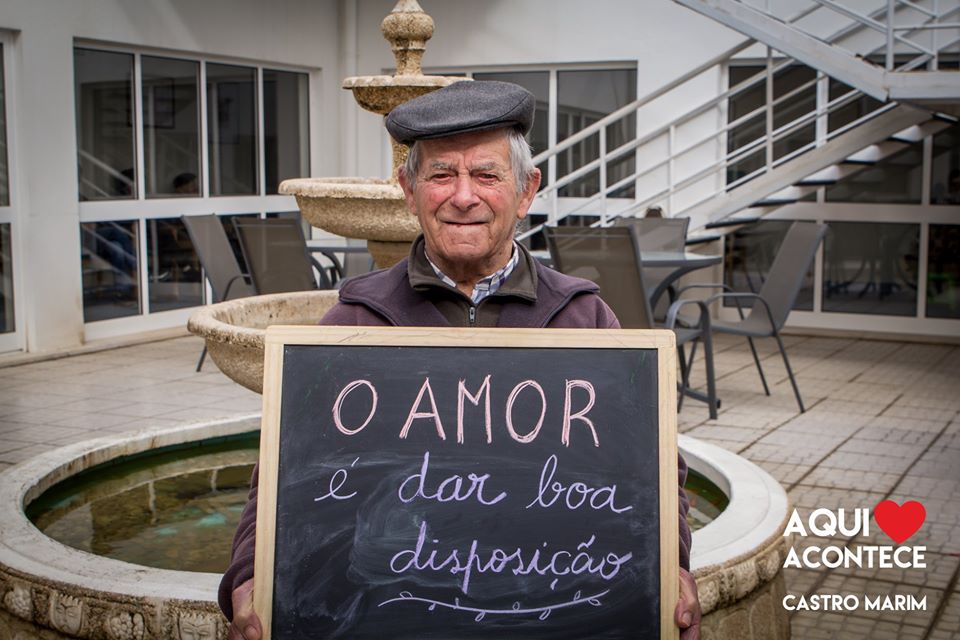 O AMOR
é dar boa
disposição
AQUI
ACONTECE
CASTRO MARIM